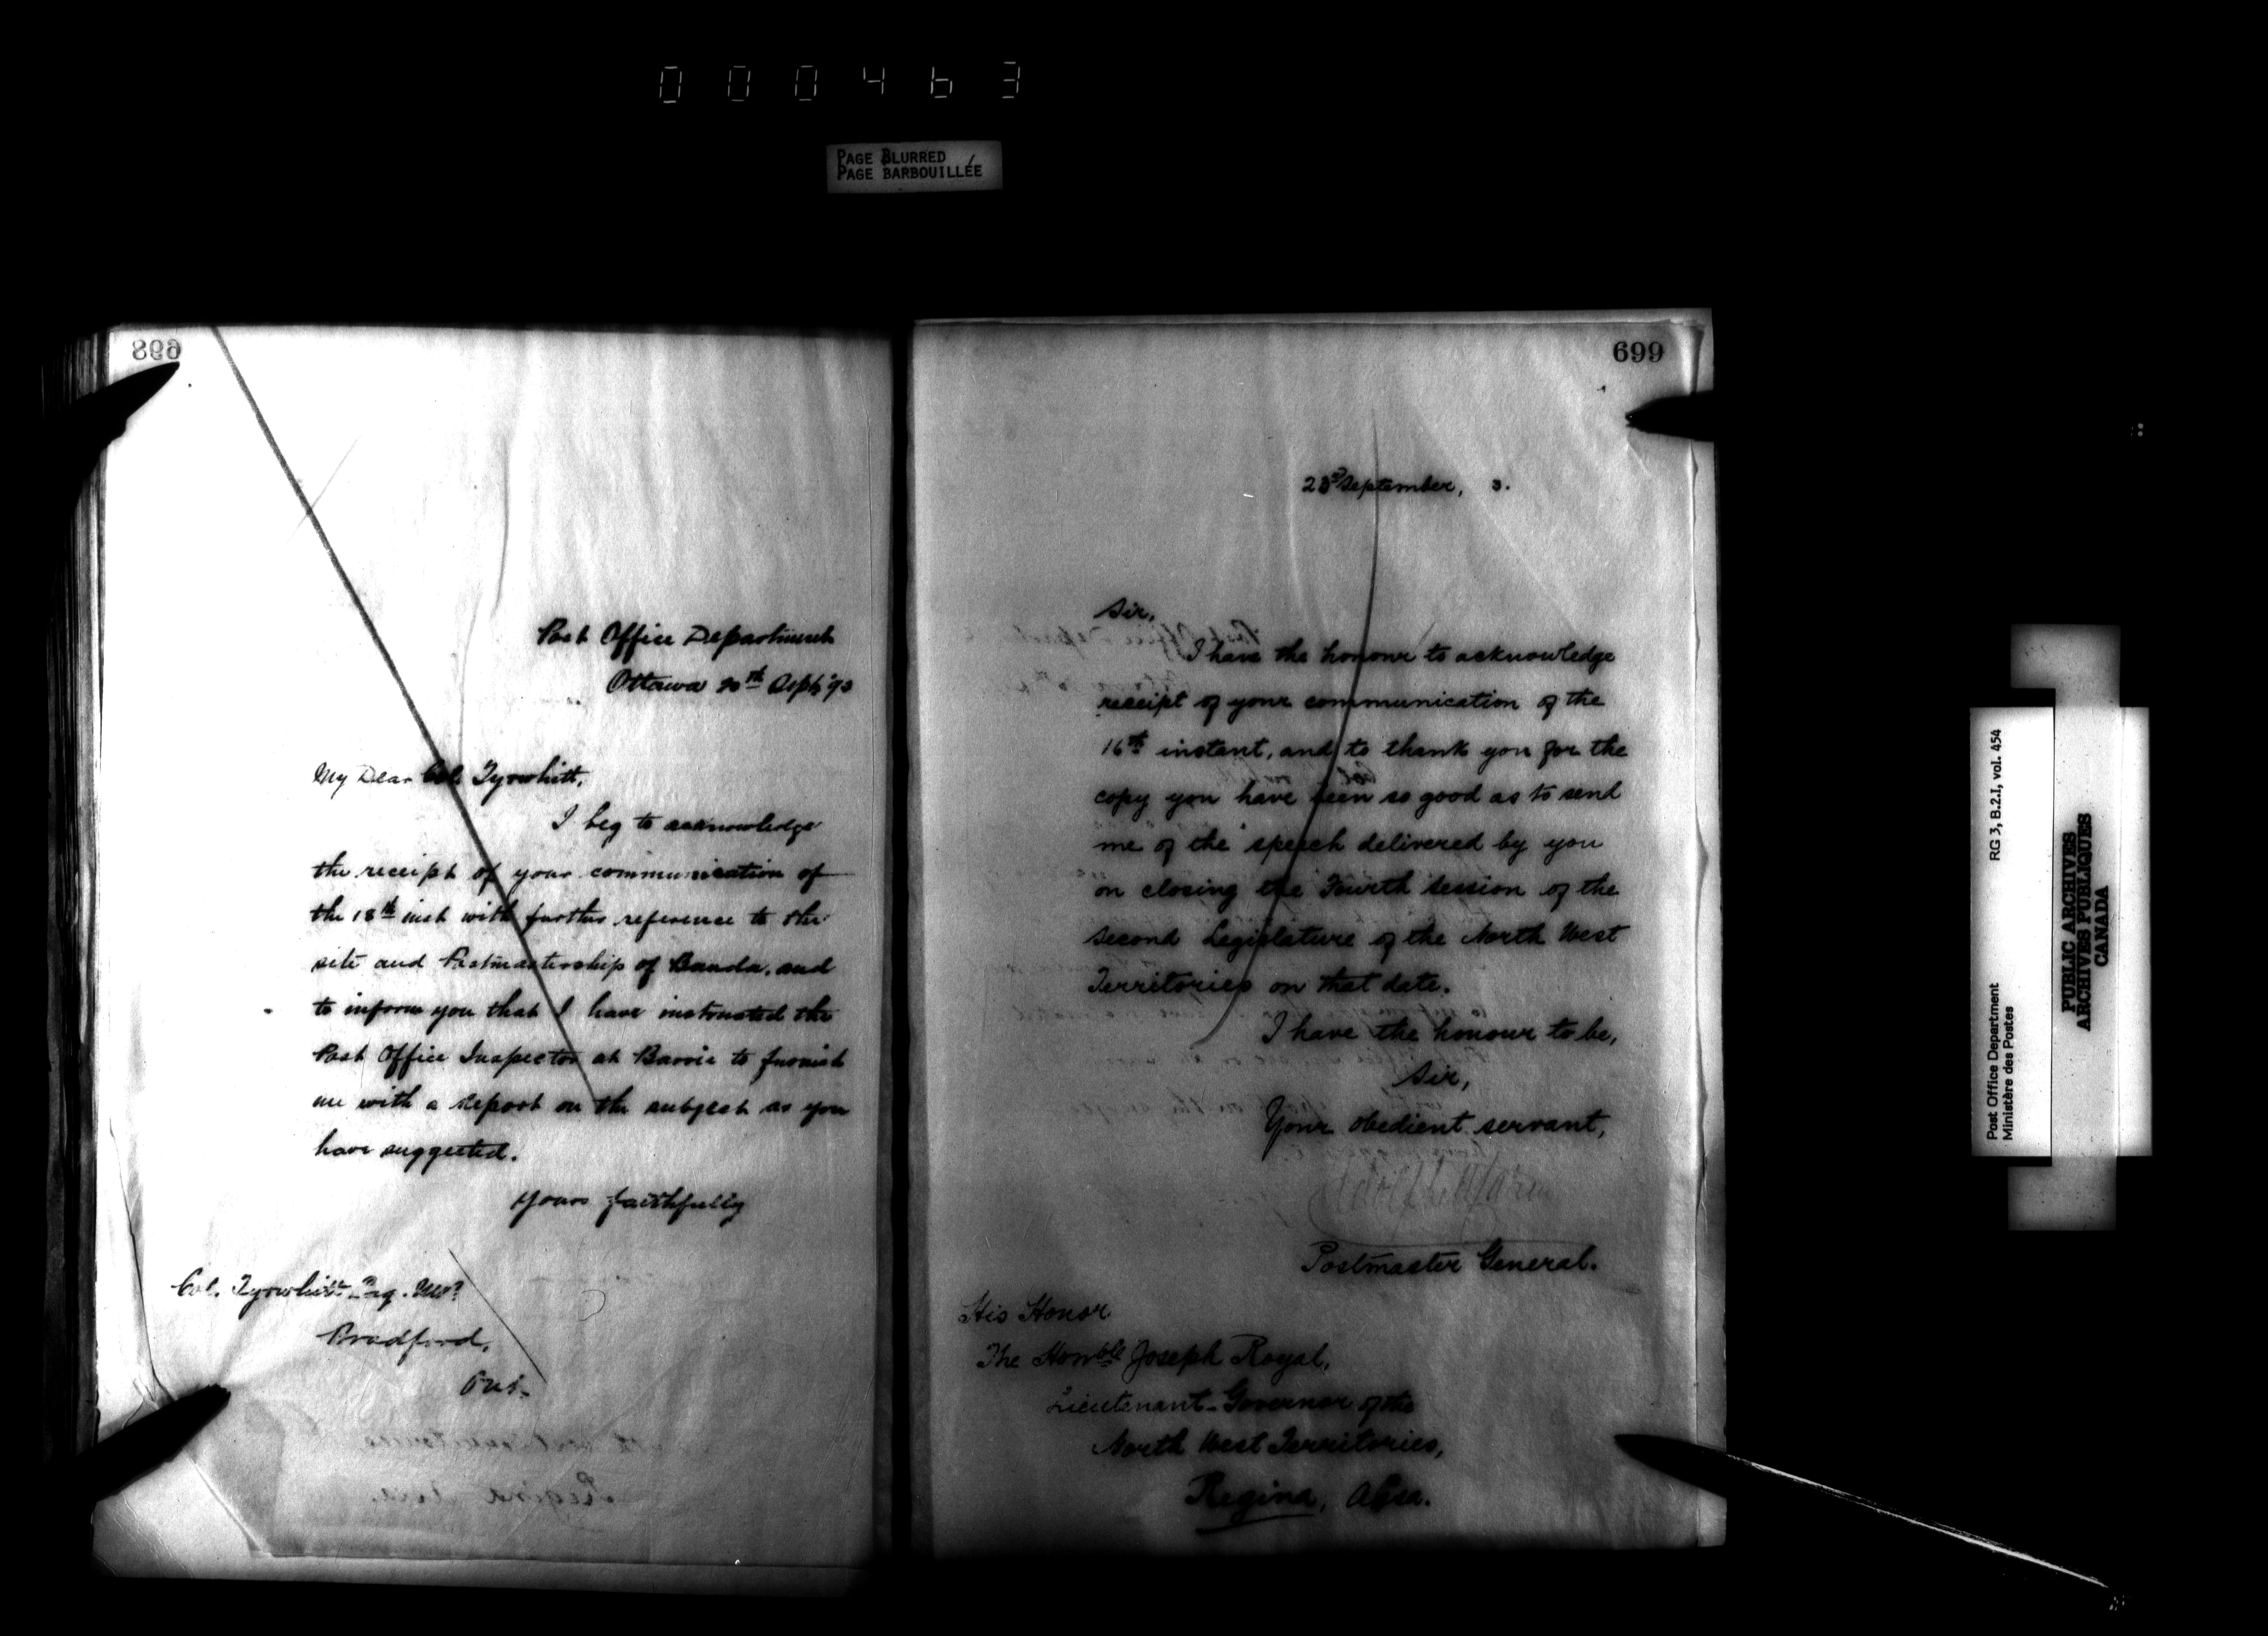 000463
PAGE BLURRED
PAGE BARBOUILLÉE
698
Post Office Department
Ottawa 20th Sept '93
My Dear Col. Tyrwhitt,
I beg to acknowledge
the receipt of your communication of
the 18th inst with further reference to the
site and Postmastership of Banda, and
to inform you that I have instructed the
Post Office Inspector at Barrie to furnish
me with a report on the subject as you
have suggested.
Yours faithfully
Col. Tyrwhitt Esq. M.P.
Bradford,
Ont.
699
23rd September, 3.
Sir,
I have the honour to acknowledge
receipt of your communication of the
16th instant, and to thank you for the
copy you have been so good as to send
me of the speech delivered by you
on closing the Fourth Session of the
Second Legislature of the North West
Territories on that date.
I have the honour to be,
Sir,
Your obedient servant,
Postmaster General.
His Honor
The Honble Joseph Royal,
Lieutenant-Governor of the
North West Territories,
Regina, Assa.
Post Office Department
Ministère des Postes
RG 3, B.2.I, vol. 454
PUBLIC ARCHIVES
ARCHIVES PUBLIQUES
CANADA